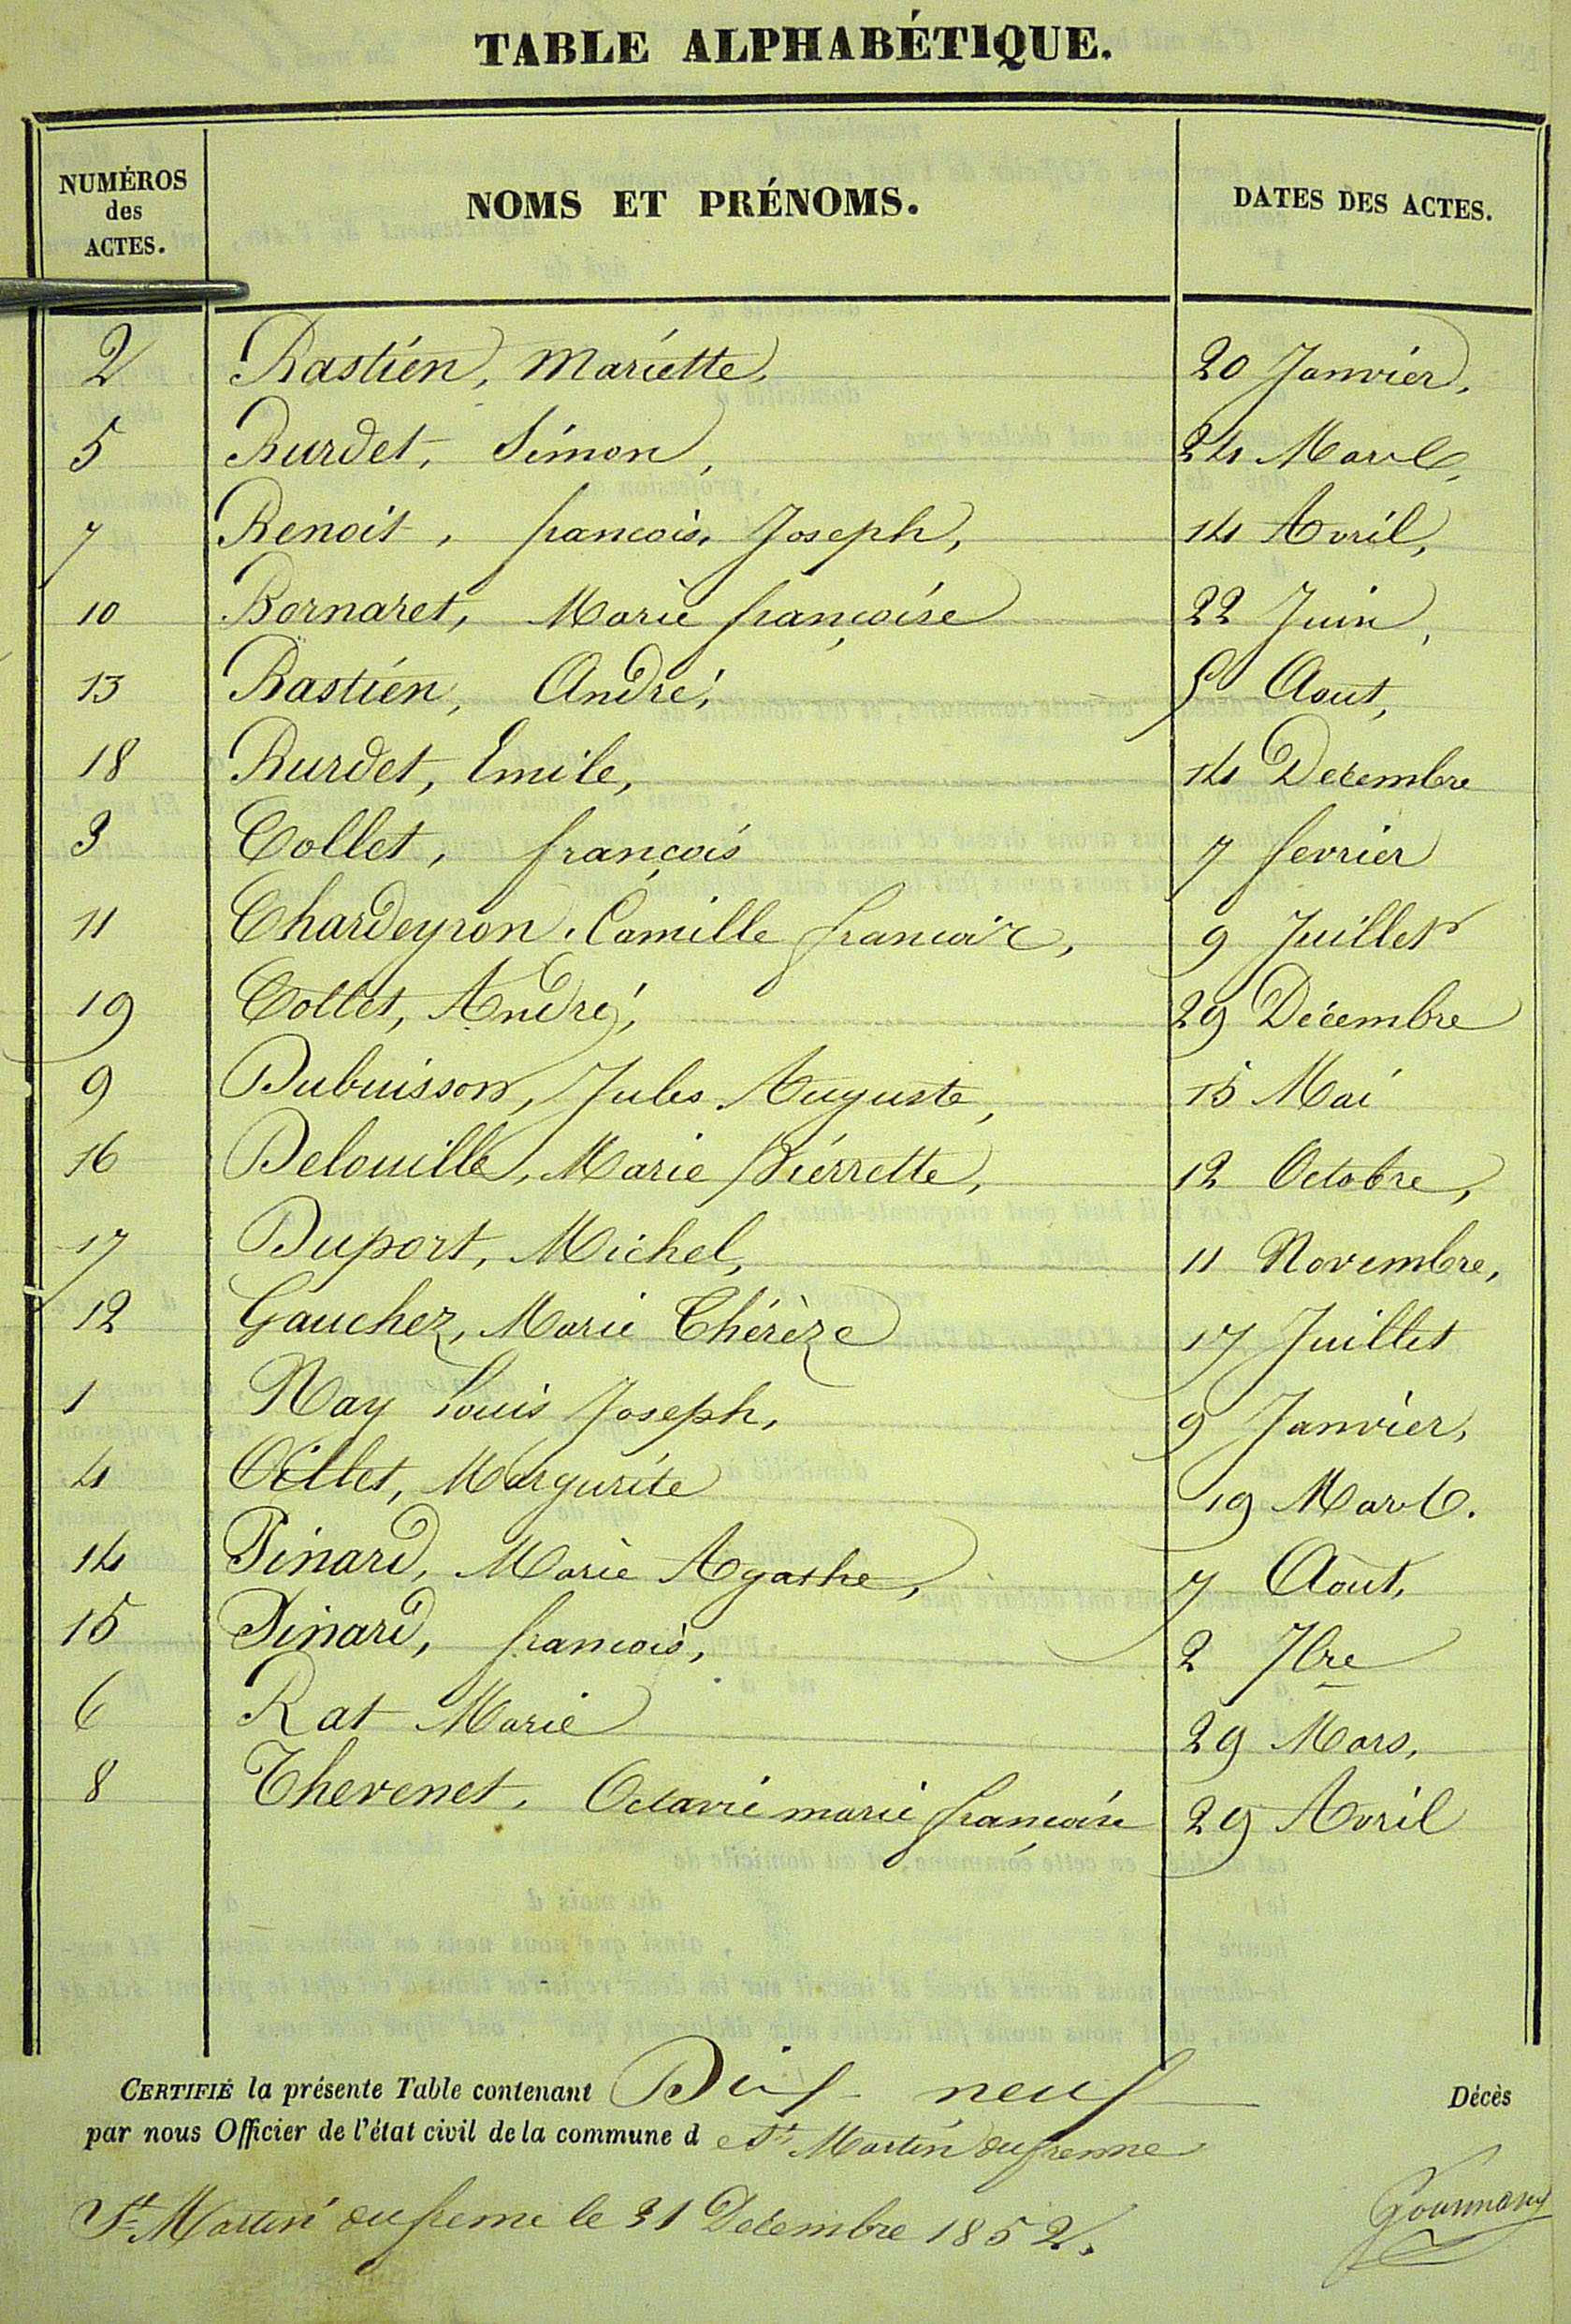 TABLE ALPHABÉTIQUE.
NUMÉROS des ACTES. NOMS ET PRÉNOMS. DATES DES ACTES.
2 Bastien, Mariette, 20 Janvier,
5 Burdet, Simon, 24 Mars,
7 Benoit, francois, Joseph, 14 Avril,
10 Bornaret, Marie françoise 22 Juin,
13 Bastien, André, 5 Aout,
18 Burdet, Emile, 14 Decembre
3 Collet, françois 7 fevrier
11 Chardeyron, Camille francois, 9 Juillet
19 Collet, André, 29 Décembre
9 Dubuisson, Jules Auguste, 15 Mai
16 Delouille, Marie Pierrette, 12 Octobre,
17 Duport, Michel, 11 Novembre,
12 Gauchez, Marie Thérèze 17 Juillet
1 Nay Louis Joseph, 9 Janvier,
4 Oillet, Margurite 19 Mars.
14 Pinard, Marie Agathe, 7 Aout,
15 Pinard, francois, 2 7bre
6 Rat Marie 29 Mars,
8 Thevenet, Octavie marie françoise 29 Avril
CERTIFIÉ la présente Table contenant Dix neuf Décès
par nous Officier de l'état civil de la commune de St Martin dufrenne
St Martin dufrenne le 31 Decembre 1852.